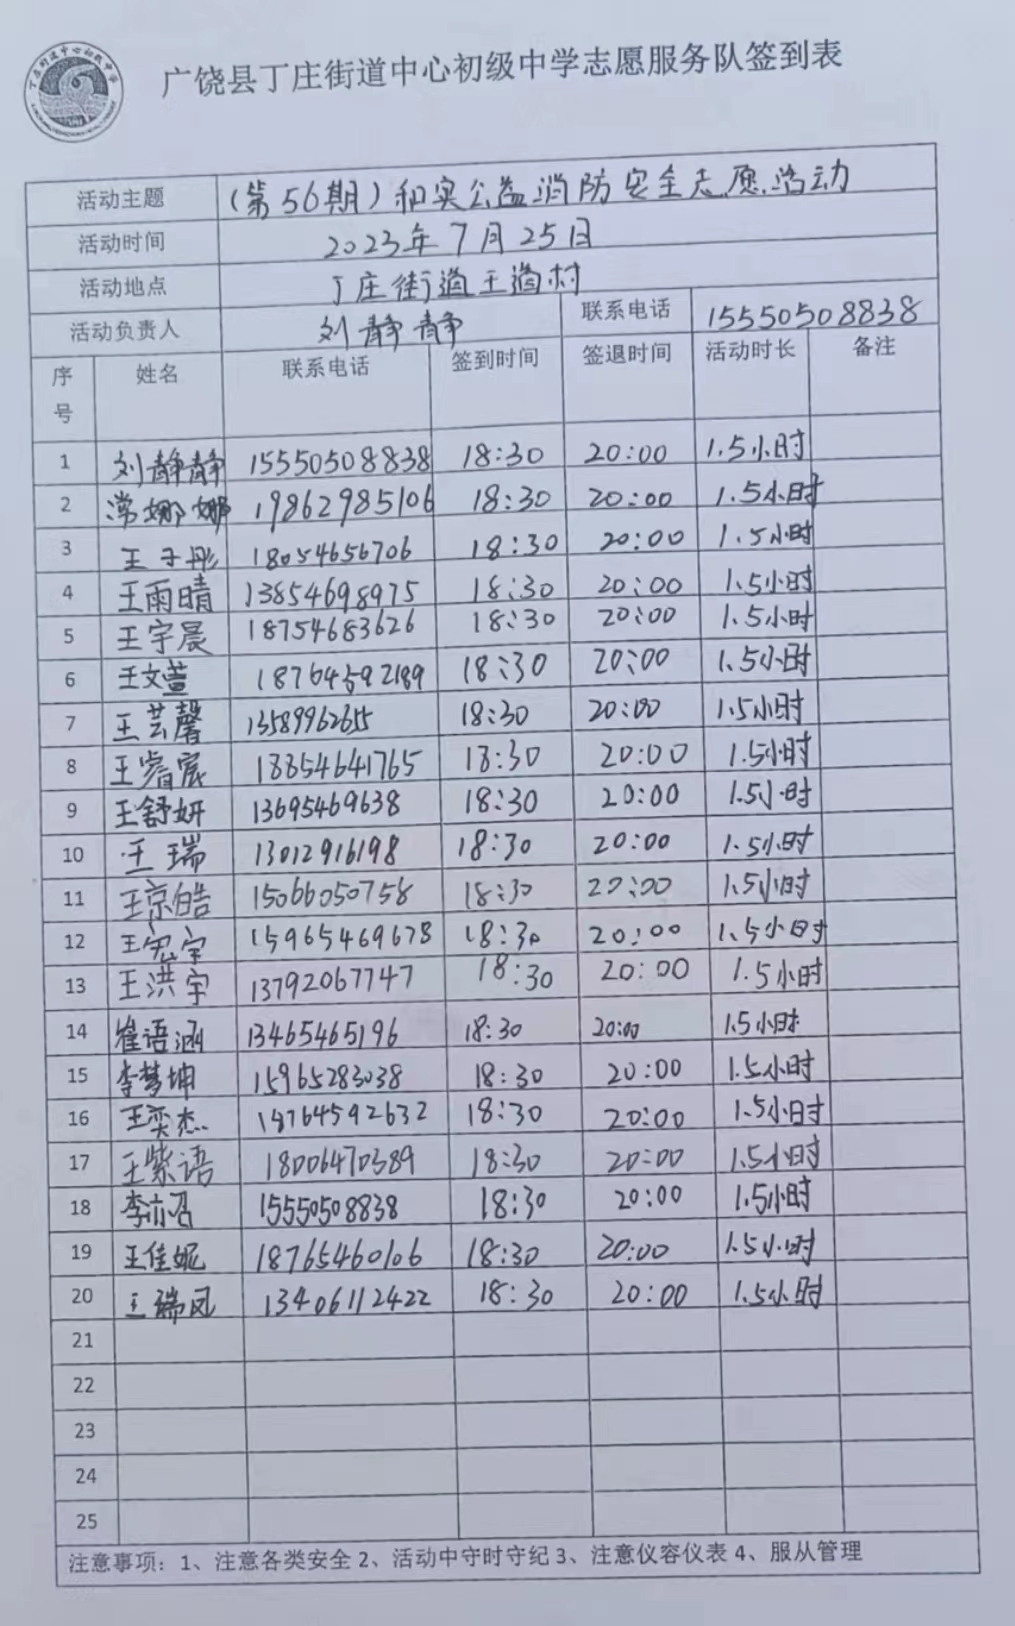 广饶县丁庄街道中心初级中学志愿服务队签到表
活动主题 (第56期)和实公益消防安全志愿活动
活动时间 2023年7月25日
活动地点 丁庄街道王道村
活动负责人 刘静静 联系电话 15550508838
序号 姓名 联系电话 签到时间 签退时间 活动时长 备注
1 刘静静 15550508838 18:30 20:00 1.5小时
2 常娜娜 19862985106 18:30 20:00 1.5小时
3 王子彤 18054656706 18:30 20:00 1.5小时
4 王雨晴 13854698975 18:30 20:00 1.5小时
5 王宇晨 18754683626 18:30 20:00 1.5小时
6 王文萱 18764592189 18:30 20:00 1.5小时
7 王芸馨 13589962655 18:30 20:00 1.5小时
8 王睿宸 18854641765 18:30 20:00 1.5小时
9 王舒妍 13695469638 18:30 20:00 1.5小时
10 王瑞 13012916198 18:30 20:00 1.5小时
11 王京皓 15066050758 18:30 20:00 1.5小时
12 王宏宇 15965469678 18:30 20:00 1.5小时
13 王洪宇 13792067747 18:30 20:00 1.5小时
14 崔语涵 13465465196 18:30 20:00 1.5小时
15 李梦坤 15965283038 18:30 20:00 1.5小时
16 王奕杰 18764592632 18:30 20:00 1.5小时
17 王紫语 18006470389 18:30 20:00 1.5小时
18 李亦召 15550508838 18:30 20:00 1.5小时
19 王佳妮 18765460106 18:30 20:00 1.5小时
20 王瑞凤 13406112422 18:30 20:00 1.5小时
21
22
23
24
25
注意事项：1、注意各类安全 2、活动中守时守纪 3、注意仪容仪表 4、服从管理